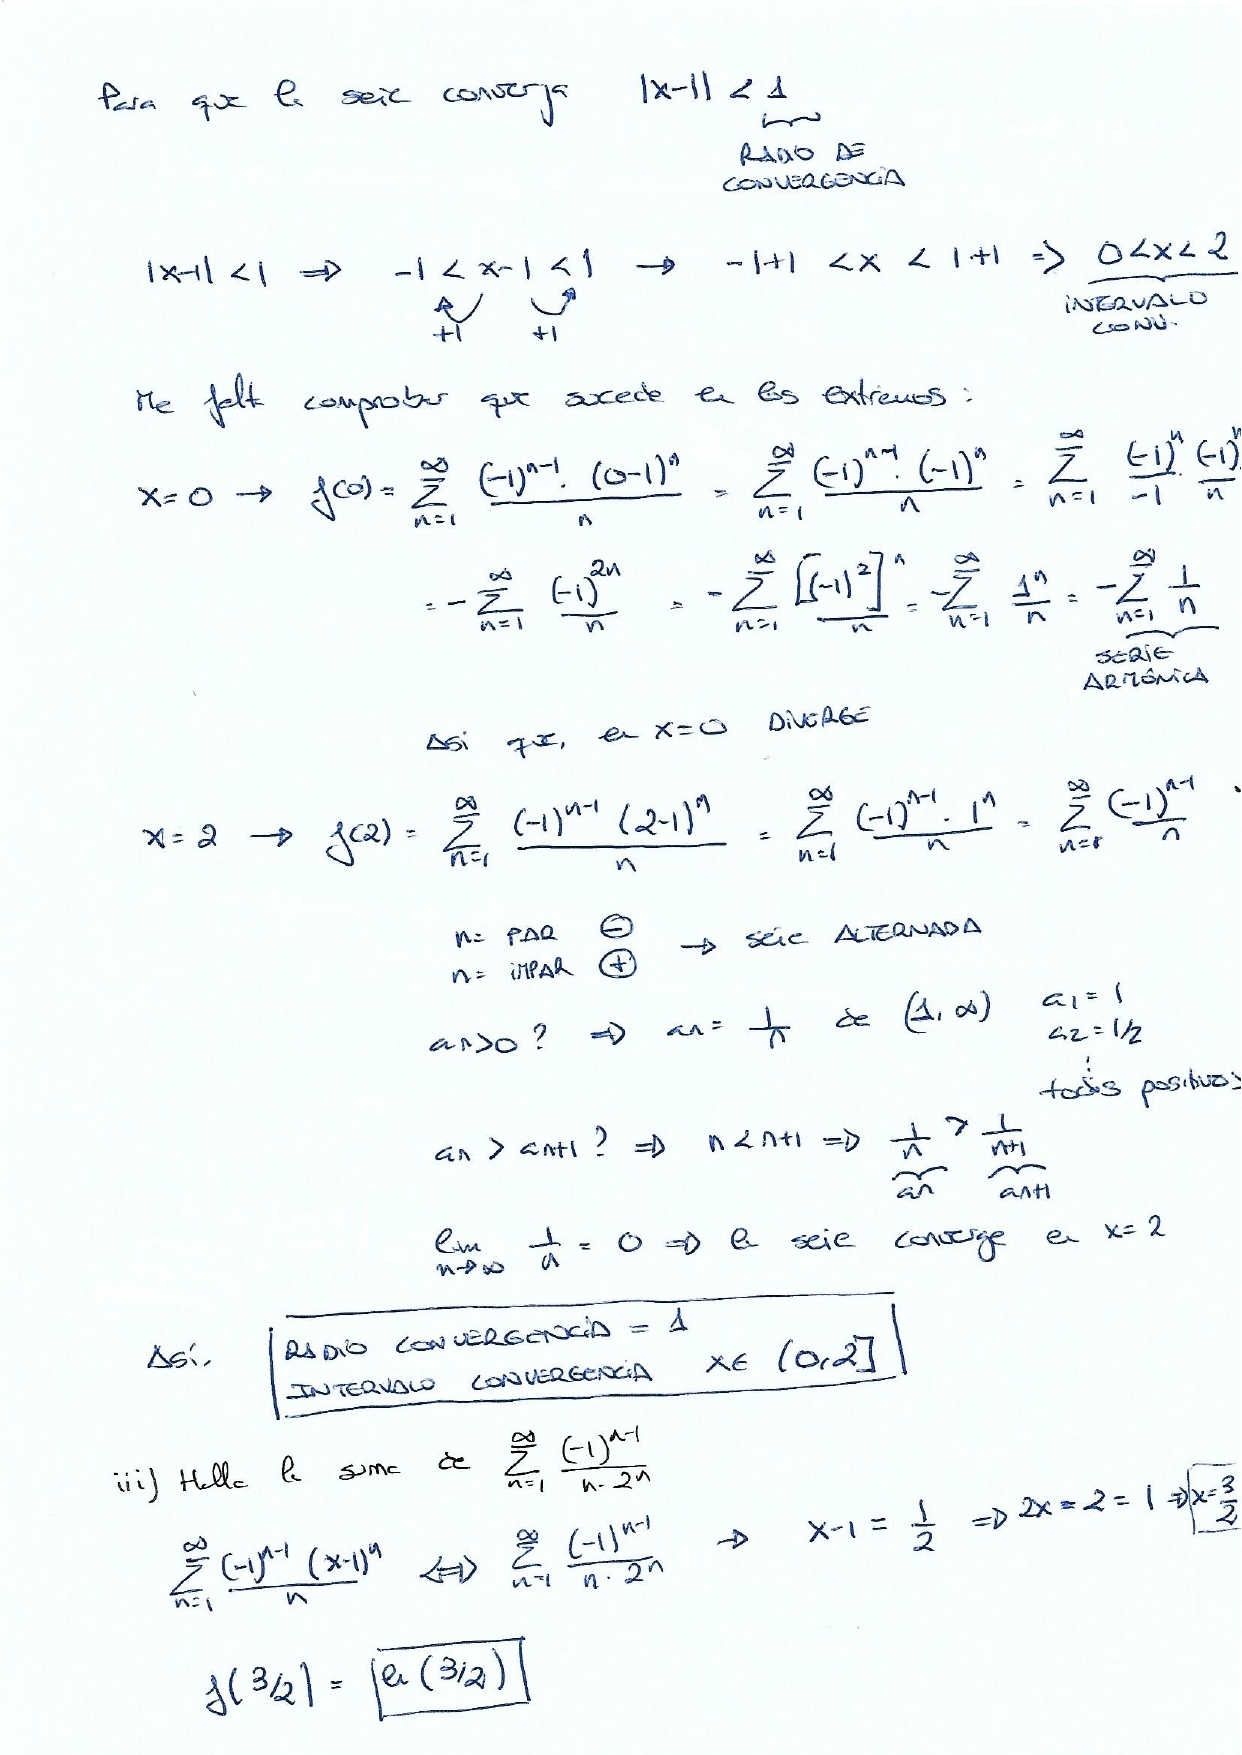 Para que la serie converja |x-1| < 1
RADIO DE
CONVERGENCIA
|x-1| < 1 ⇒ -1 < x-1 < 1 → -1+1 < x < 1+1 ⇒ 0<x<2
+1 +1
INTERVALO
CONV.
Me falta comprobar que sucede en los extremos:
x=0 → f(0) = ∞Σn=1 (-1)^{n-1}·(0-1)^n / n = ∞Σn=1 (-1)^{n-1}·(-1)^n / n = ∞Σn=1 (-1)^n / -1 · (-1)^n / n
= - ∞Σn=1 (-1)^{2n} / n = - ∞Σn=1 [(-1)^2]^n / n = - ∞Σn=1 1^n / n = - ∞Σn=1 1/n
SERIE
ARMÓNICA
Así que, en x=0 DIVERGE
x=2 → f(2) = ∞Σn=1 (-1)^{n-1} (2-1)^n / n = ∞Σn=1 (-1)^{n-1} · 1^n / n = ∞Σn=1 (-1)^{n-1} / n
n= PAR ⊖
n= IMPAR ⊕ → serie ALTERNADA
an>0? ⇒ an = 1/n de (1, ∞) a1 = 1
a2 = 1/2
⋮
todos positivos
an > an+1? ⇒ n < n+1 ⇒ 1/n > 1/n+1
an an+1
lim n→∞ 1/n = 0 ⇒ la serie converge en x=2
Así. RADIO CONVERGENCIA = 1
INTERVALO CONVERGENCIA x∈ (0,2]
iii) Halla la suma de ∞Σn=1 (-1)^{n-1} / n·2^n
∞Σn=1 (-1)^{n-1} (x-1)^n / n ⇔ ∞Σn=1 (-1)^{n-1} / n·2^n → x-1 = 1/2 ⇒ 2x-2=1 ⇒ x=3/2
f(3/2) = ln(3/2)